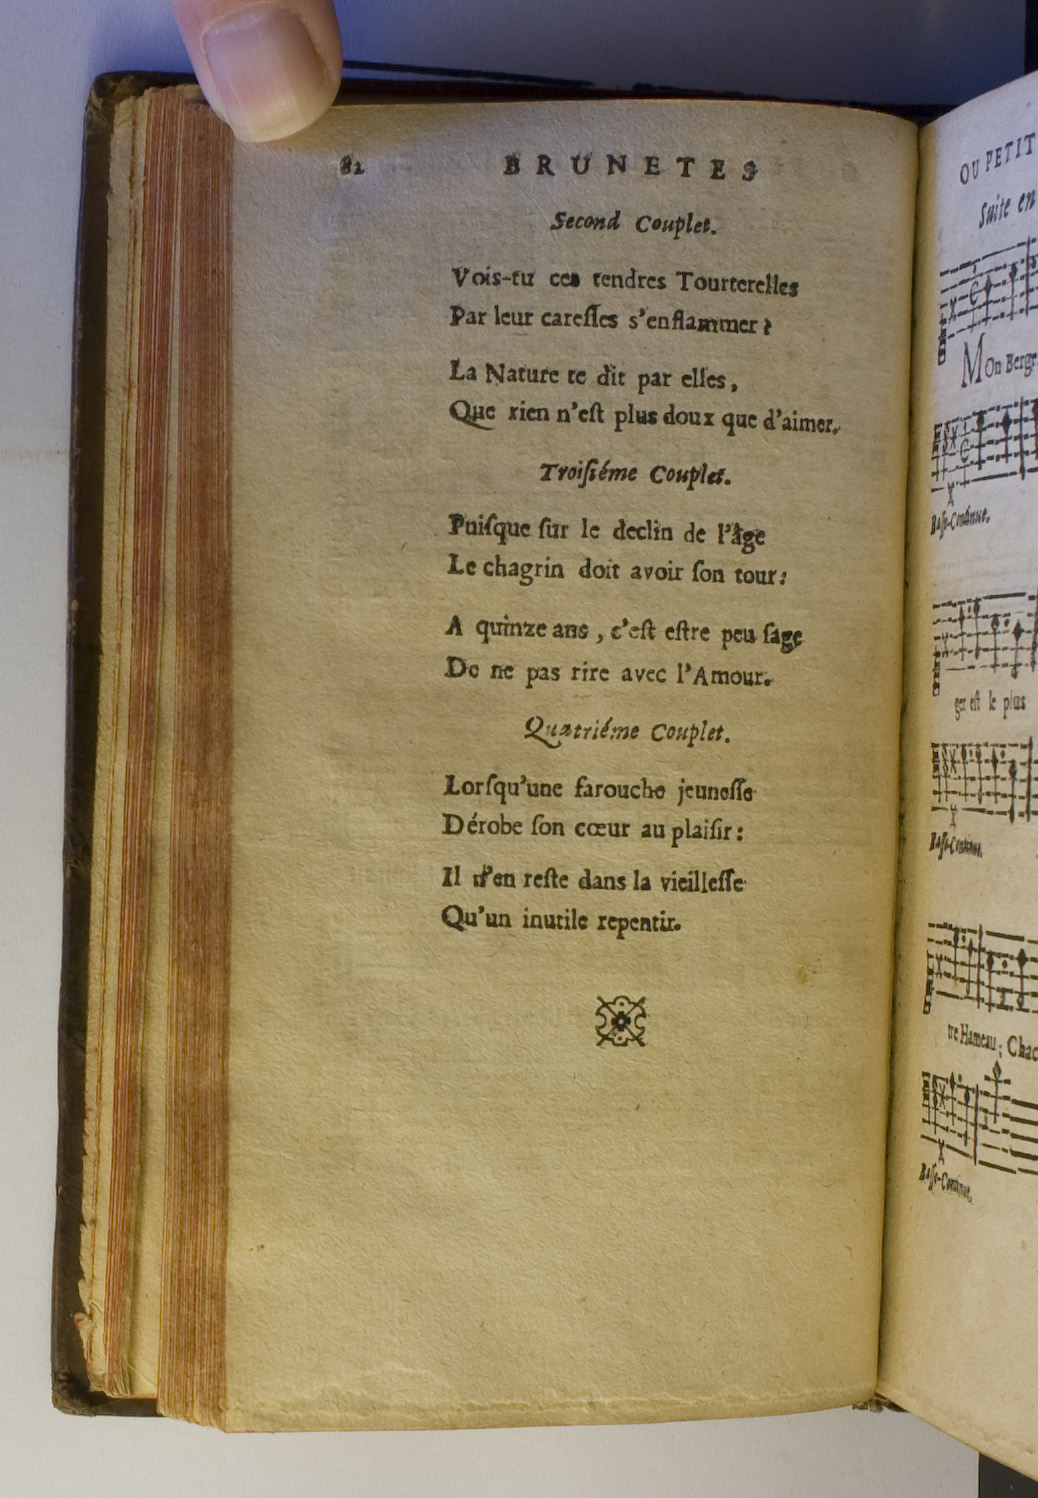 82 BRUNETES
Second Couplet.
Vois-tu ces tendres Tourterelles
Par leur careſſes s'enflammer ?
La Nature te dit par elles,
Que rien n'eſt plus doux que d'aimer.
Troiſiéme Couplet.
Puiſque ſur le declin de l'âge
Le chagrin doit avoir ſon tour :
A quinze ans , c'eſt eſtre peu ſage
De ne pas rire avec l'Amour.
Quatriéme Couplet.
Lorſqu'une farouche jeuneſſe
Dérobe ſon cœur au plaiſir :
Il n'en reſte dans la vieilleſſe
Qu'un inutile repentir.
OU PETIT
Suite en
MOn Berge
Baſſe-Continue.
ger eſt le plus
Baſſe-Continue.
tre Hameau ; Chac
Baſſe-Continue.